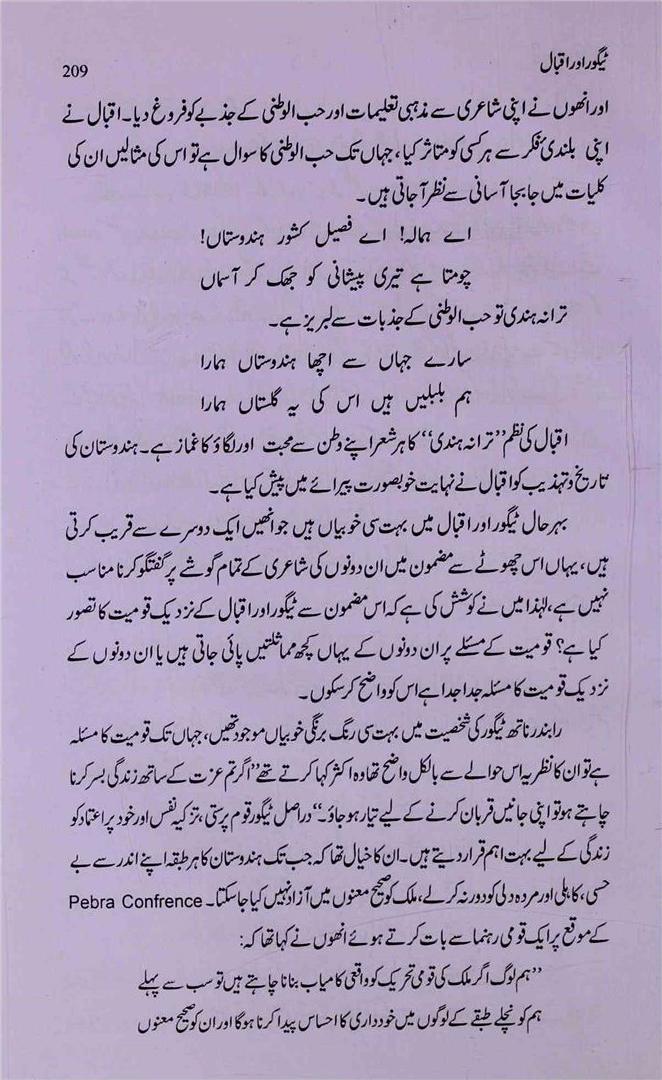 ٹیگور اور اقبال
209
اور انھوں نے اپنی شاعری سے مذہبی تعلیمات اور حب الوطنی کے جذبے کو فروغ دیا۔ اقبال نے
اپنی بلندیٔ فکر سے ہر کسی کو متاثر کیا، جہاں تک حب الوطنی کا سوال ہے تو اس کی مثالیں ان کی
کلیات میں جا بجا آسانی سے نظر آ جاتی ہیں۔
اے ہمالہ! اے فصیل کشور ہندوستاں!
چومتا ہے تیری پیشانی کو جھک کر آسماں
ترانہ ہندی تو حب الوطنی کے جذبات سے لبریز ہے۔
سارے جہاں سے اچھا ہندوستاں ہمارا
ہم بلبلیں ہیں اس کی یہ گلستاں ہمارا
اقبال کی نظم ”ترانہ ہندی“ کا ہر شعر اپنے وطن سے محبت اور لگاؤ کا غماز ہے۔ ہندوستان کی
تاریخ و تہذیب کو اقبال نے نہایت خوبصورت پیرائے میں پیش کیا ہے۔
بہرحال ٹیگور اور اقبال میں بہت سی خوبیاں ہیں جو انھیں ایک دوسرے سے قریب کرتی
ہیں، یہاں اس چھوٹے سے مضمون میں ان دونوں کی شاعری کے تمام گوشے پر گفتگو کرنا مناسب
نہیں ہے، لہٰذا میں نے کوشش کی ہے کہ اس مضمون سے ٹیگور اور اقبال کے نزدیک قومیت کا تصور
کیا ہے؟ قومیت کے مسئلے پر ان دونوں کے یہاں کچھ مماثلتیں پائی جاتی ہیں یا ان دونوں کے
نزدیک قومیت کا مسئلہ جدا جدا ہے اس کو واضح کر سکوں۔
رابندر ناتھ ٹیگور کی شخصیت میں بہت سی رنگ برنگی خوبیاں موجود تھیں، جہاں تک قومیت کا مسئلہ
ہے تو ان کا نظریہ اس حوالے سے بالکل واضح تھا وہ اکثر کہا کرتے تھے ”اگر تم عزت کے ساتھ زندگی بسر کرنا
چاہتے ہو تو اپنی جانیں قربان کرنے کے لیے تیار ہو جاؤ۔“ دراصل ٹیگور قوم پرستی، تزکیہ نفس اور خود پر اعتماد کو
زندگی کے لیے بہت اہم قرار دیتے ہیں۔ ان کا خیال تھا کہ جب تک ہندوستان کا ہر طبقہ اپنے اندر سے بے
حسی، کاہلی اور مردہ دلی کو دور نہ کر لے، ملک کو صحیح معنوں میں آزاد نہیں کیا جا سکتا۔ Pebra Confrence
کے موقع پر ایک قومی رہنما سے بات کرتے ہوئے انھوں نے کہا تھا کہ:
”ہم لوگ اگر ملک کی قومی تحریک کو واقعی کامیاب بنانا چاہتے ہیں تو سب سے پہلے
ہم کو نچلے طبقے کے لوگوں میں خودداری کا احساس پیدا کرنا ہوگا اور ان کو صحیح معنوں